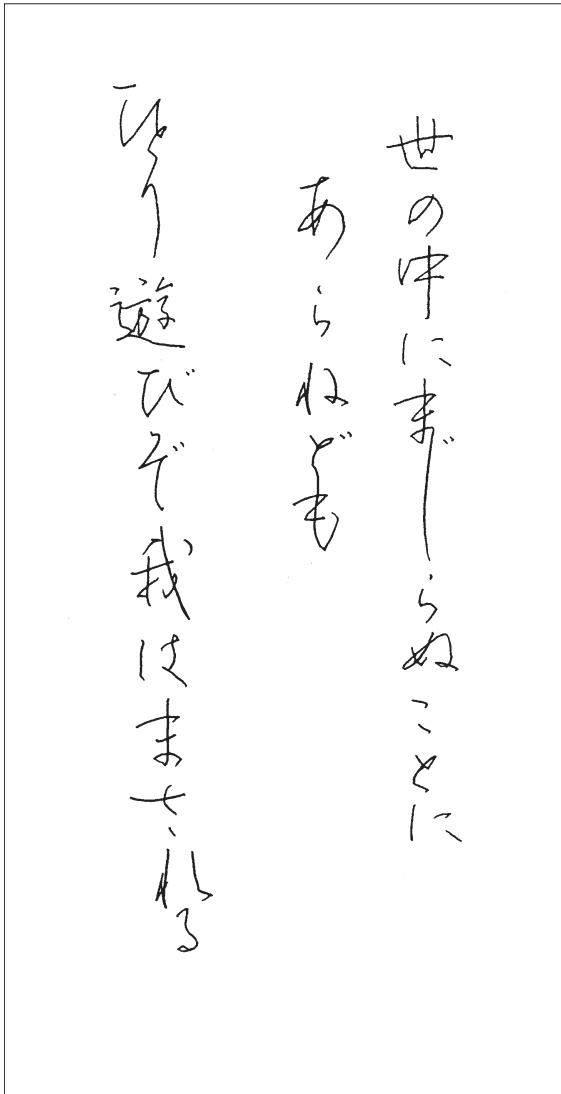 世の中にまじらぬことに
あらねども
ひとり遊びぞ我はまされる